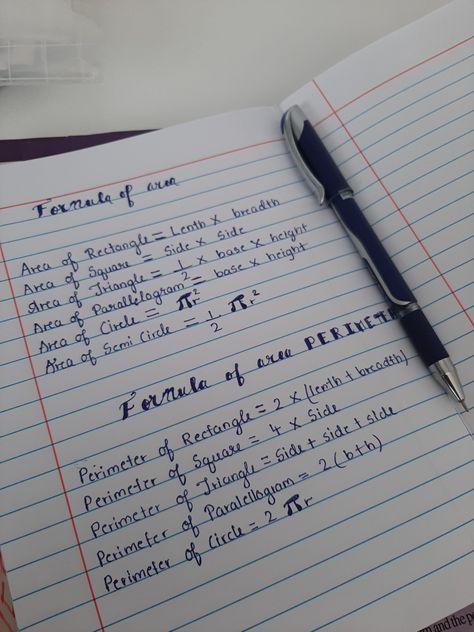 Formula of area
Area of Rectangle = Lenth × breadth
Area of Square = Side × Side
Area of Triangle = 1/2 × base × height
Area of Parallelogram = base × height
Area of Circle = πr²
Area of Semi Circle = 1/2 πr²
Formula of area PERIMET
Perimeter of Rectangle = 2 × (lenth + breadth)
Perimeter of Square = 4 × Side
Perimeter of Triangle = Side + side + side
Perimeter of Paralellogram = 2(b+h)
Perimeter of Circle = 2 πr
and the p